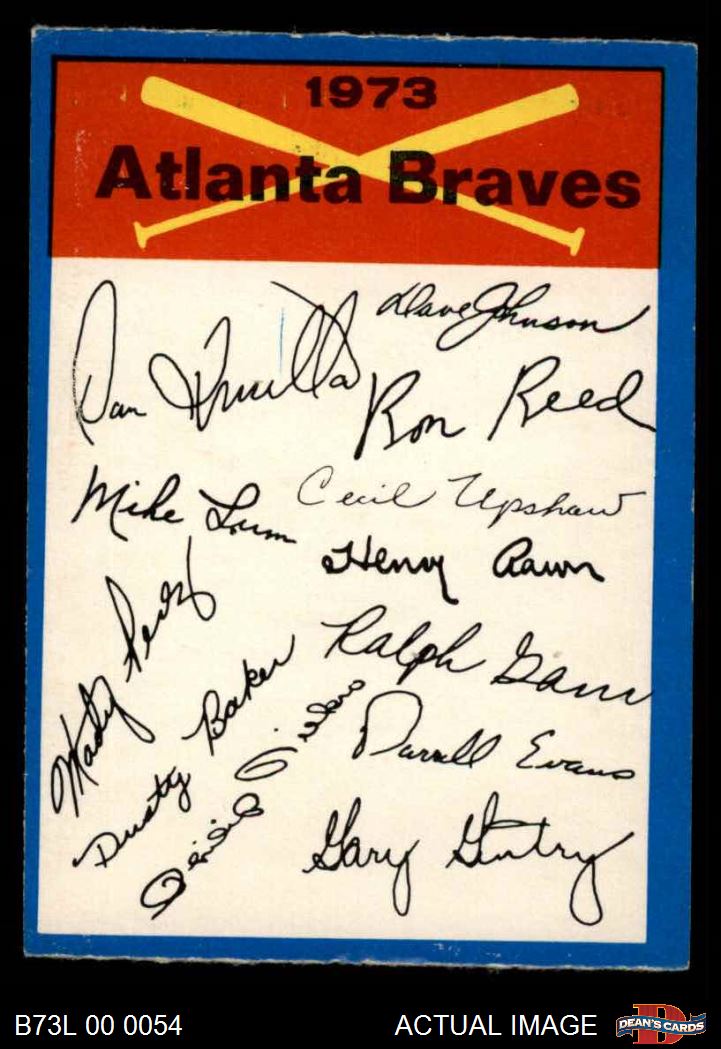 1973
Atlanta Braves
Dave Johnson
Dan
Ron Reed
Mike Lum
Cecil Upshaw
Henry Aaron
Marty Perez
Ralph Garr
Dusty Baker
Darrell Evans
Gary Gentry
B73L 00 0054
ACTUAL IMAGE
D
DEAN'S CARDS